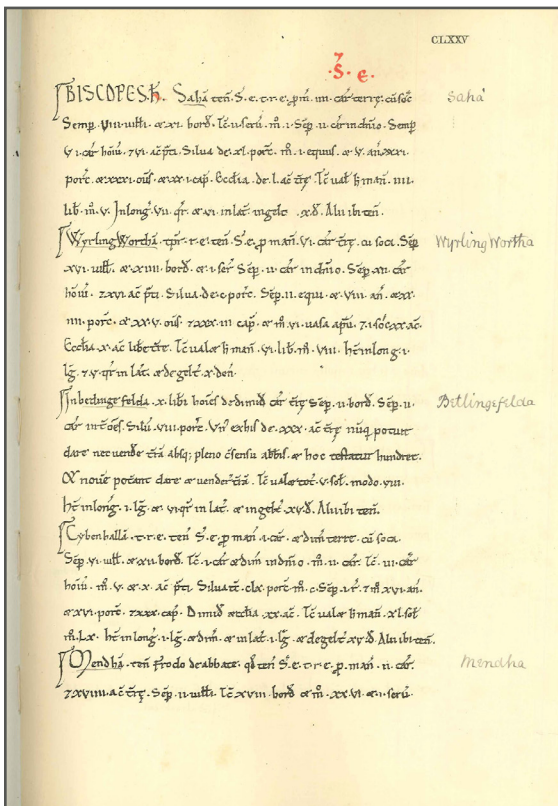 CLXXV
7
·S· e·
BISCOPES.h̄. Saha ten̄. S. e. t. r. e. p m̄. IIII. car̄ terrę. cū soc̄ Saha
Semp̄. VIII. uilłi. ⁊ XI. bord̄. Tc̄. II. seru. m̄. I. Sep̄. II. car̄ in dn̄io. Semp
VI. car̄ hōiū. ⁊ VI. ac̄ p̄ti. Silua de. XL. porc̄. m̄. I. equus. ⁊ V. an̄. XXI.
porc̄. ⁊ XXXI. oūs. ⁊ XX. I. cap̄. Ecclia. de. L. ac̄ trę. Tc̄ uał ꝑ man̄. IIII.
lib̄. m̄. V. In long. VII. qr̄. ⁊ VI. in lat̄. in gelt. X. d̄. Alii ibi ten̄.
Wyrling Wortha. tp̄r. r. e. ten̄. S. e. p man̄. VI. car̄ trę. cū soca. Sep̄ Wyrling Wortha
XVI. uilł. ⁊ XIIII. bord̄. ⁊ I. ser̄. Sep̄. II. car̄ in dn̄io. Sep̄. XII. car̄
hōiū. ⁊ XVI. ac̄ p̄ti. Silua de. C. porc̄. Sep̄. II. equi. ⁊ VIII. an̄. ⁊ XX.
IIII. porc̄. ⁊ XX. V. oūs. ⁊ XXX. III. cap̄. ⁊ m̄. VI. uasa apū. ⁊. I. soc̄ XX. ac̄.
Ecclia. X. ac̄ libe trę. Tc̄ ual ꝑ man̄. VI. lib̄. m̄. VIII. ht̄ in long. I.
lg̃. ⁊ V. qr̄ in lat̄. ⁊ de gelt̄. X. den̄.
In betlingefelda. X. libi hōies de dimid̄ car̄ trę. Sep̄. II. bord̄. Sep̄. II. Betlingefelda
car̄ int̄ oēs. Silū. VIII. porc̄. Vn̄ ex his de. XXX. ac̄ trę nūq̄ potuit
dare nec uende trā absq; pleno c̄sensu abbis. ⁊ hoc testatur hundret.
Et nouē poterant dare ⁊ uender̄ trā. Tc̄ uał tot̄. V. soł. modo. VIII.
ht̄ in long. I. lg̃. ⁊ VI. qr̄ in lat̄. ⁊ in gelt̄. XV. d̄. Alii ibi ten̄.
Cybenhalla. t. r. e. ten̄ S. e. p man̄. I. car̄. ⁊ dim̄ terre. cū soca.
Sep̄. VI. uilł. ⁊ XII. bord̄. Tc̄. I. car̄ ⁊ dim̄ in dn̄io. m̄. II. car̄. Tc̄. III. car̄
hōiū. m̄. V. ⁊. X. ac̄ p̄ti. Silua tc̄. CLX. porc̄. m̄. C. Sep̄. I. r̄. ⁊ m̄ XVI. an̄.
⁊ XVI. porc̄. ⁊ XXX. cap̄. Dimid̄ ęcclia. XX. ac̄. Tc̄ ual ꝑ man̄. XL. soł
m̄. LX. ht̄ in long. I. lg̃. ⁊ dim̄. ⁊ in lat̄. I. lg̃. ⁊ de gelt̄ XV. d̄. Alii ibi ten̄.
Mendha. ten̄ Frodo de abbate. qd̄ ten̄ S. e. t. r. e. p. man̄. II. car̄. Mendha
⁊ XVIIII. ac̄ trę. Sep̄. II. uilłi. Tc̄ XVIII. bord̄ ⁊ m̄. XX. VI. ⁊. I. seru.